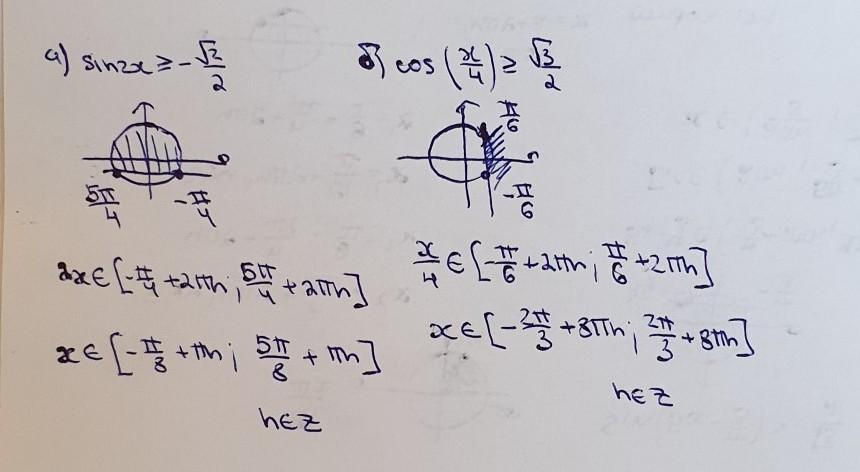 а) sin2x ≥ -√2/2
5π/4
-π/4
2x ∈ [-π/4 + 2πn; 5π/4 + 2πn]
x ∈ [-π/8 + πn; 5π/8 + πn]
n ∈ Z
б) cos (x/4) ≥ √3/2
π/6
-π/6
x/4 ∈ [-π/6 + 2πn; π/6 + 2πn]
x ∈ [-2π/3 + 8πn; 2π/3 + 8πn]
n ∈ Z